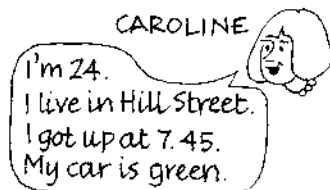 CAROLINE
I'm 24.
I live in Hill Street.
I got up at 7.45.
My car is green.